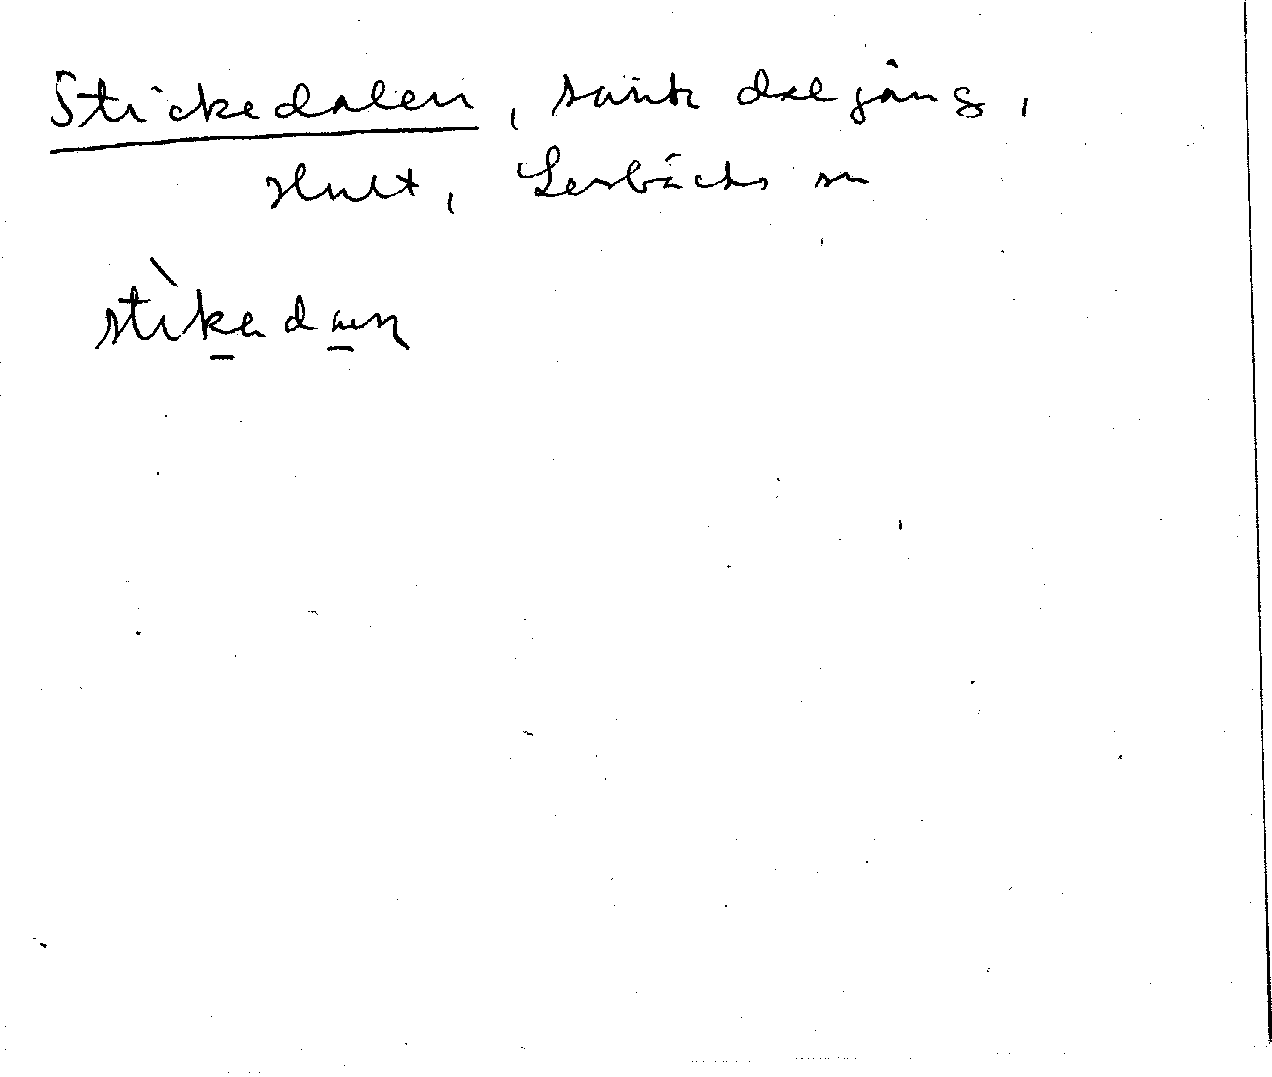 Stickedalen, sänk dalgång,
Hult, Lerbäcks sn
stìkedaen